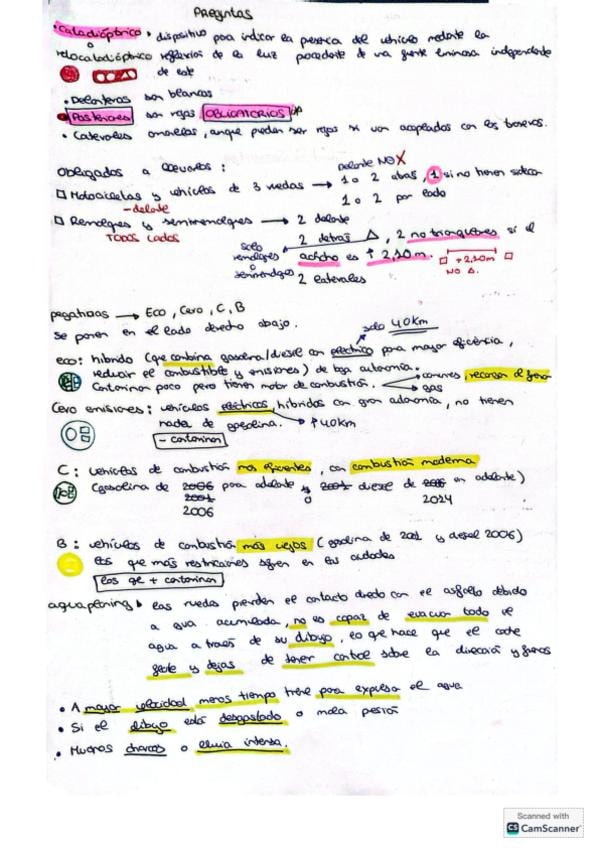 Preguntas
• Catadióptrico → dispositivo para indicar la presencia del vehículo mediante la
o
retrocatadióptrico reflexión de la luz procedente de una fuente luminosa independiente
de este
• Delanteros son blancos
• Posteriores son rojos OBLIGATORIOS
• Laterales amarillos, aunque pueden ser rojos si van acoplados con los traseros.
Obligados a llevarlos:
Delante NO X
□ Motocicletas y vehículos de 3 ruedas → 1 o 2 atrás, 1 si no tienen sidecar
- delante
1 o 2 por lado
□ Remolques y semirremolques → 2 delante
TODOS LADOS
2 detrás △, 2 no triangulares si el
solo remolques o semirremolques
ancho es ↑ 2,10m. □ +2,10m □
NO △.
2 laterales
pegatinas → Eco, Cero, C, B
se ponen en el lado derecho abajo.
solo 40km
eco: híbrido (que combina gasolina/diesel con eléctrico para mayor eficiencia,
reducir el combustible y emisiones) de baja autonomía.
comunes, recargan al frenar
Contaminan poco pero tienen motor de combustión.
gas
Cero emisiones: vehículos eléctricos, híbridos con gran autonomía, no tienen
nada de gasolina. ↑40km
- contaminan
C: vehículos de combustión más eficientes, con combustión moderna
(gasolina de 2006 para adelante y diesel de en adelante)
2006
2024
B: vehículos de combustión más viejos (gasolina de 2001 y diesel 2006)
Los que más restricciones sufren en las ciudades
los que + contaminan
aquaplaning → las ruedas pierden el contacto directo con el asfalto debido
a agua acumulada, no es capaz de evacuar todo el
agua a través de su dibujo, lo que hace que el coche
flote y dejas de tener control sobre la dirección y frenos
• A mayor velocidad menos tiempo tiene para expulsar el agua
• Si el dibujo está desgastado o mala presión
• Muchos charcos o lluvia intensa.
Scanned with
CS CamScanner